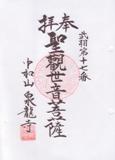 武相第十七番
奉拝
聖觀世音菩薩
中和山 泉龍寺